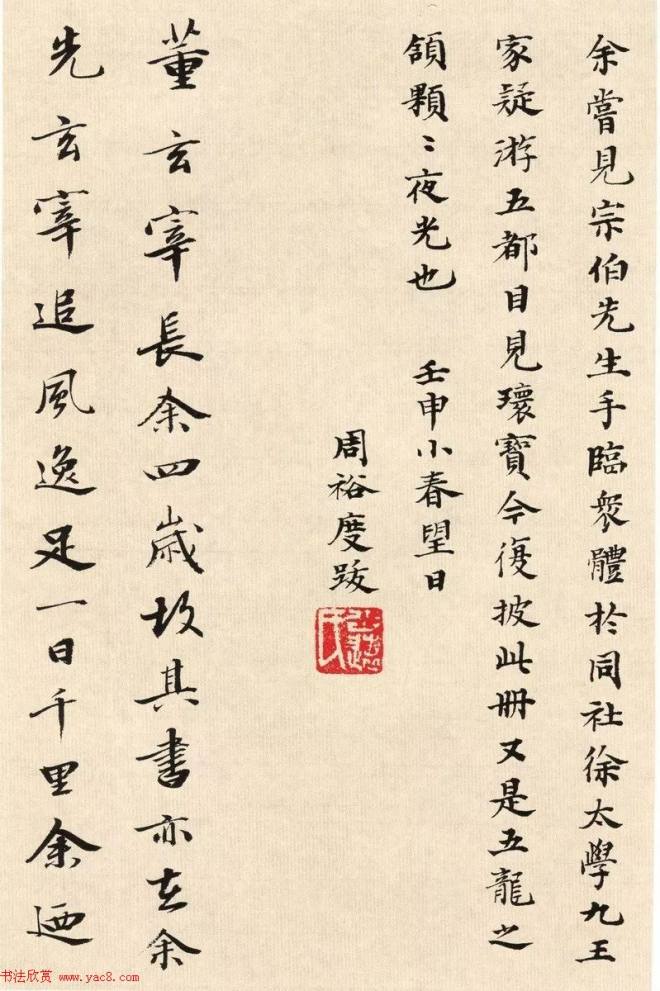 余嘗見宗伯先生手臨衆體於同社徐太學九玉
家疑游五都目見瓌寶今復披此冊又是五龍之
頷顆〻夜光也 壬申小春望日
周裕度跋
董玄宰長余四歲故其書亦在余
先玄宰追風逸足一日千里余迺
书法欣赏 www.yac8.com